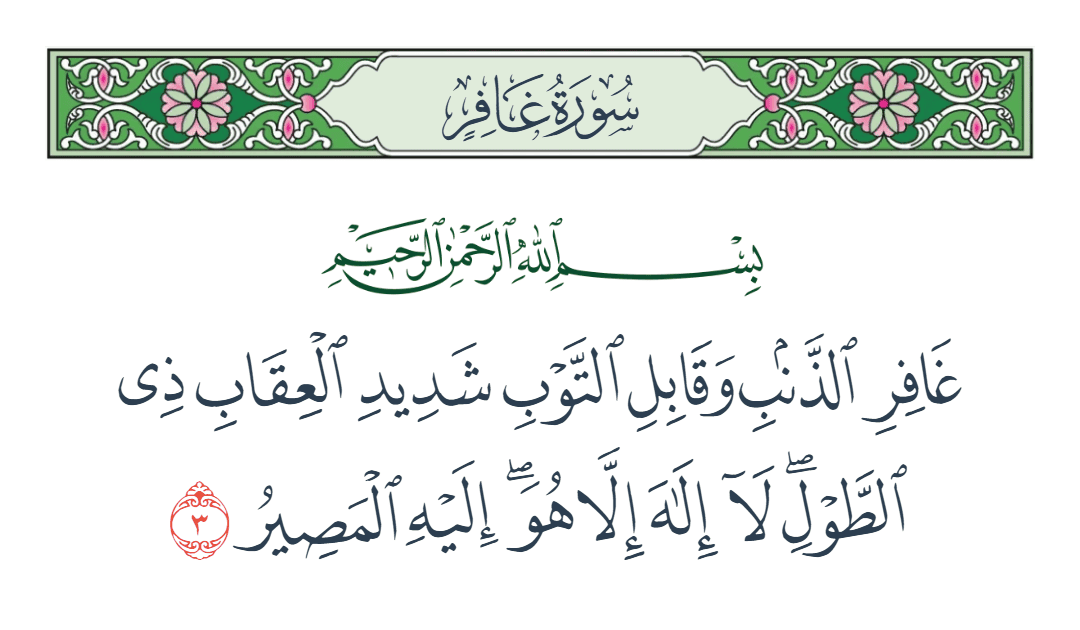 سُورَةُ غَافِرٍ
بِسْمِ ٱللَّهِ ٱلرَّحْمَٰنِ ٱلرَّحِيمِ
غَافِرِ ٱلذَّنۢبِ وَقَابِلِ ٱلتَّوْبِ شَدِيدِ ٱلْعِقَابِ ذِى
ٱلطَّوْلِۖ لَآ إِلَٰهَ إِلَّا هُوَۖ إِلَيْهِ ٱلْمَصِيرُ ٣